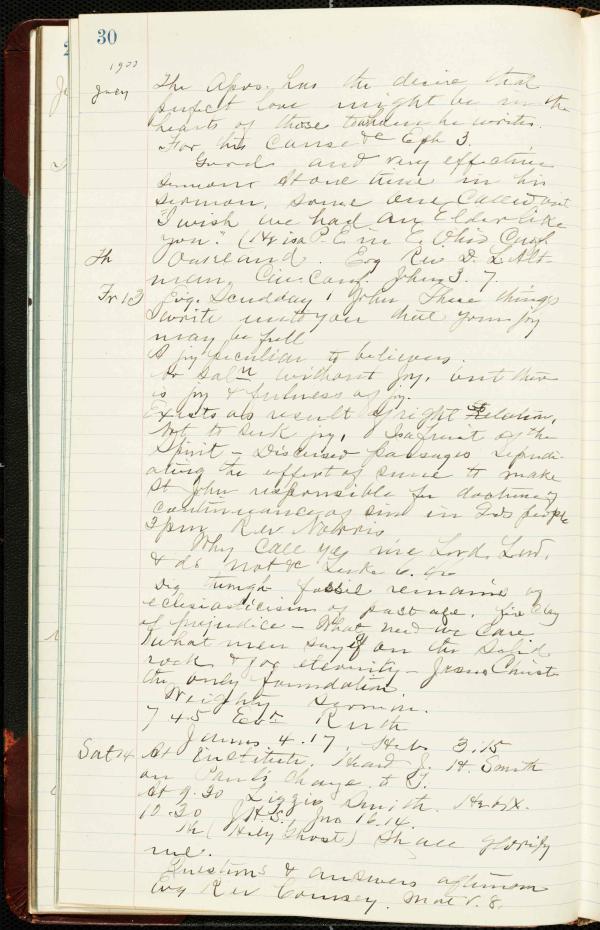 30
1900
July The Apos. has the desire that
perfect love might be in the
hearts of those to whom he writes.
"For this cause &c Eph 3.
Good and very effective
sermon. At one time in his
sermon, some one called out
"I wish we had an Elder like
you." (He is a P. E. in E. Ohio Conf.
Th Oakland. Evg Rev D. L. Alt-
man, Cin. Conf. John 3. 7.
Fr 13 Evg. Scudday 1 John These things
I write unto you that your joy
may be full
A joy peculiar to believers.
No Saln without joy, but there
is joy & fulness of joy.
Exists as result of right relation,
Not to seek joy, Is a fruit of the
Spirit – Discussed passages repudi-
ating the effort of some to make
St John responsible for doctrine of
continuance of sin in Gods people
2 pm Rev Norris
Why call ye me Lord, Lord,
& do not &c Luke 6. 46
Dig through fossil remains of
eclesiasticism of past age, fire clay
of prejudice – What need we care
what men say if on the solid
rock & for eternity – Jesus Christ
the only foundation.
Weighty sermon.
7 45 Evn Ruth
James 4. 17, Heb. 3:15
Sat 14 At Institute. Heard J. H. Smith
on Paul's charge to T.
At 9.30 Smith.
10.30 J.H.S. Jno 16.14.
He (Holy Ghost) shall glorify
me.
Questions & answers afternoon
Evg Rev Comsey. Mat V. 8.